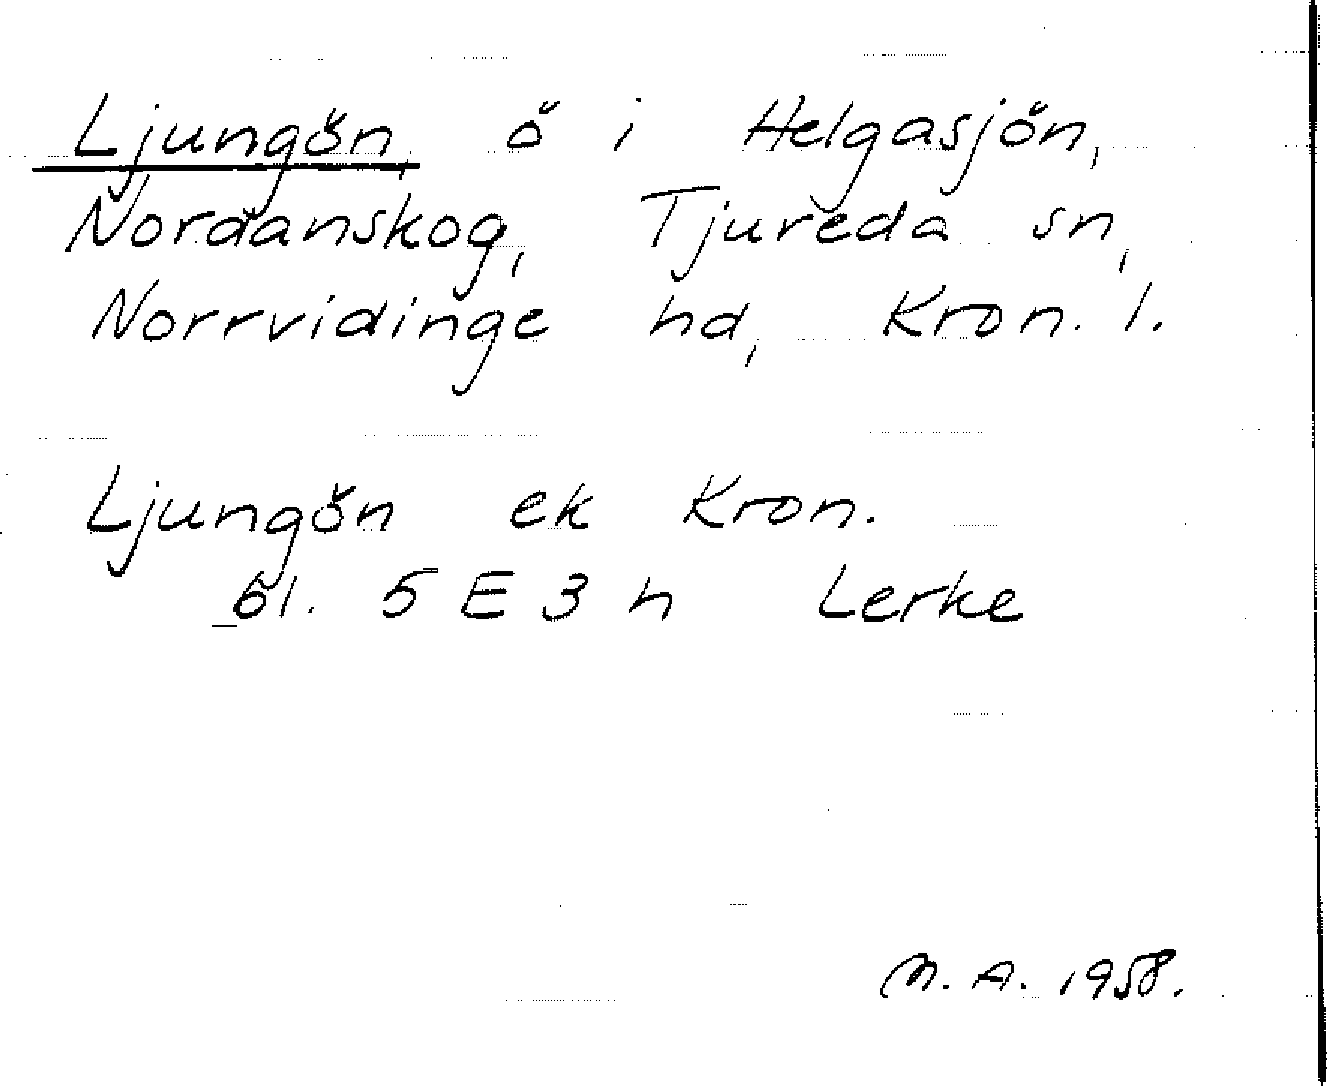 Ljungön, ö i Helgasjön,
Nordanskog, Tjureda sn,
Norrvidinge hd, Kron. l.
Ljungön ek Kron.
bl. 5 E 3 h Lerke
M. A. 1958.